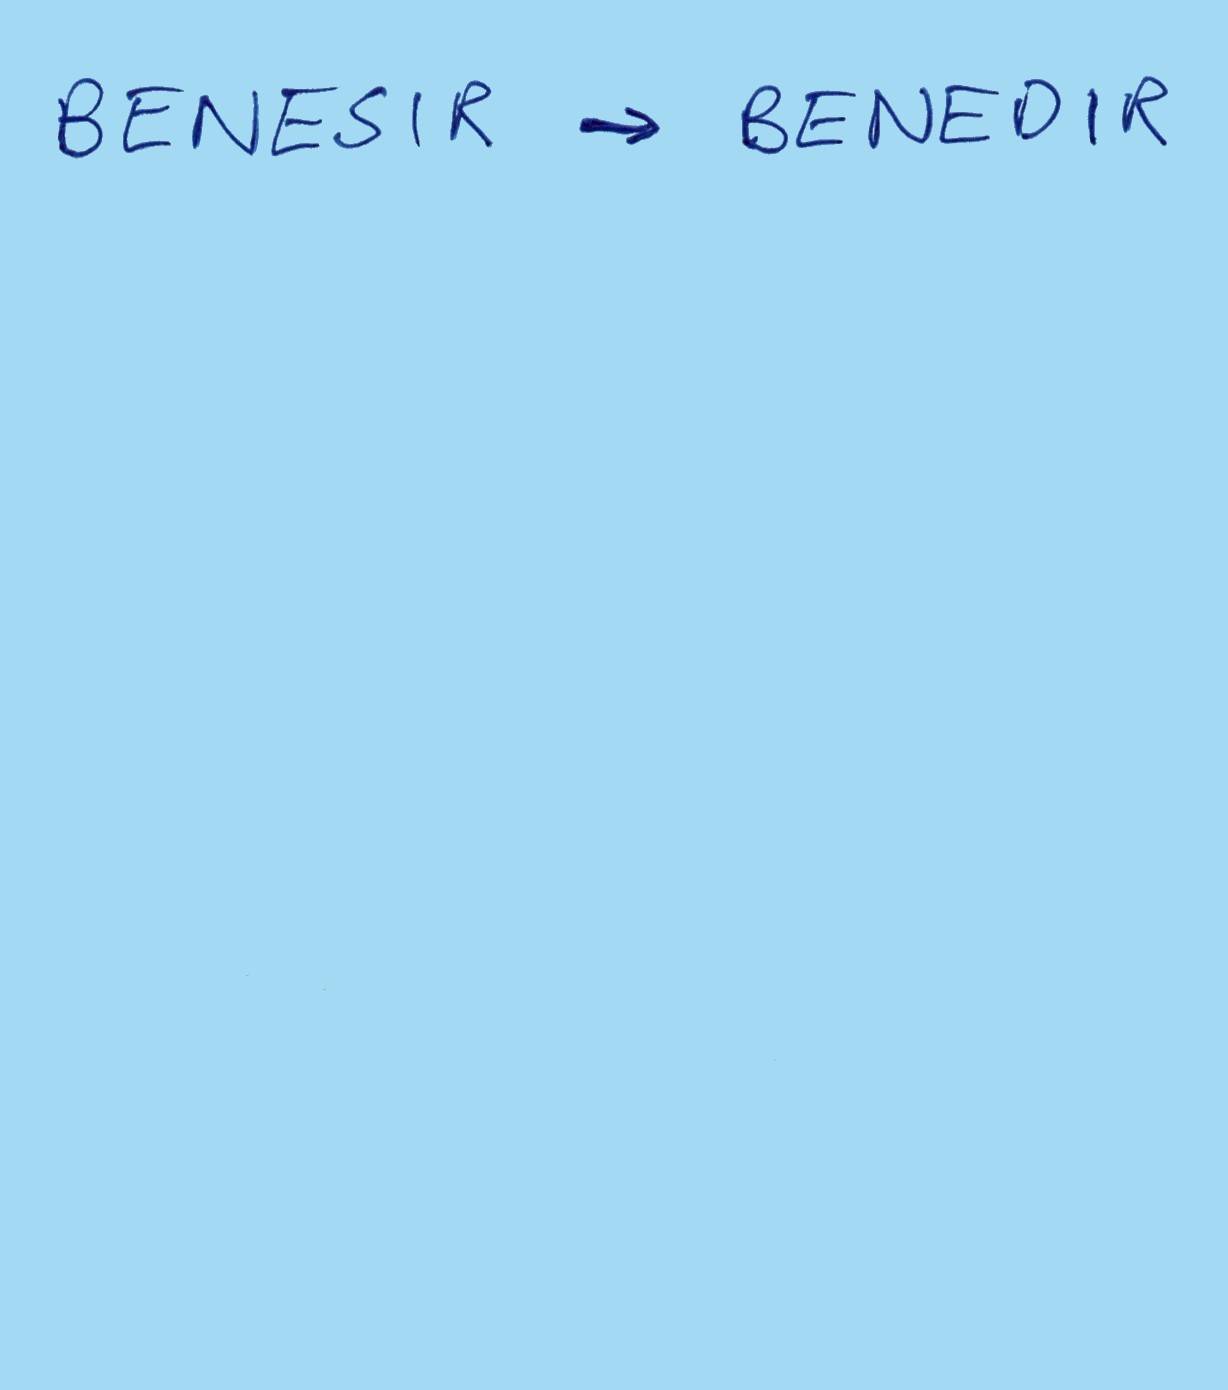 BENESIR → BENEDIR